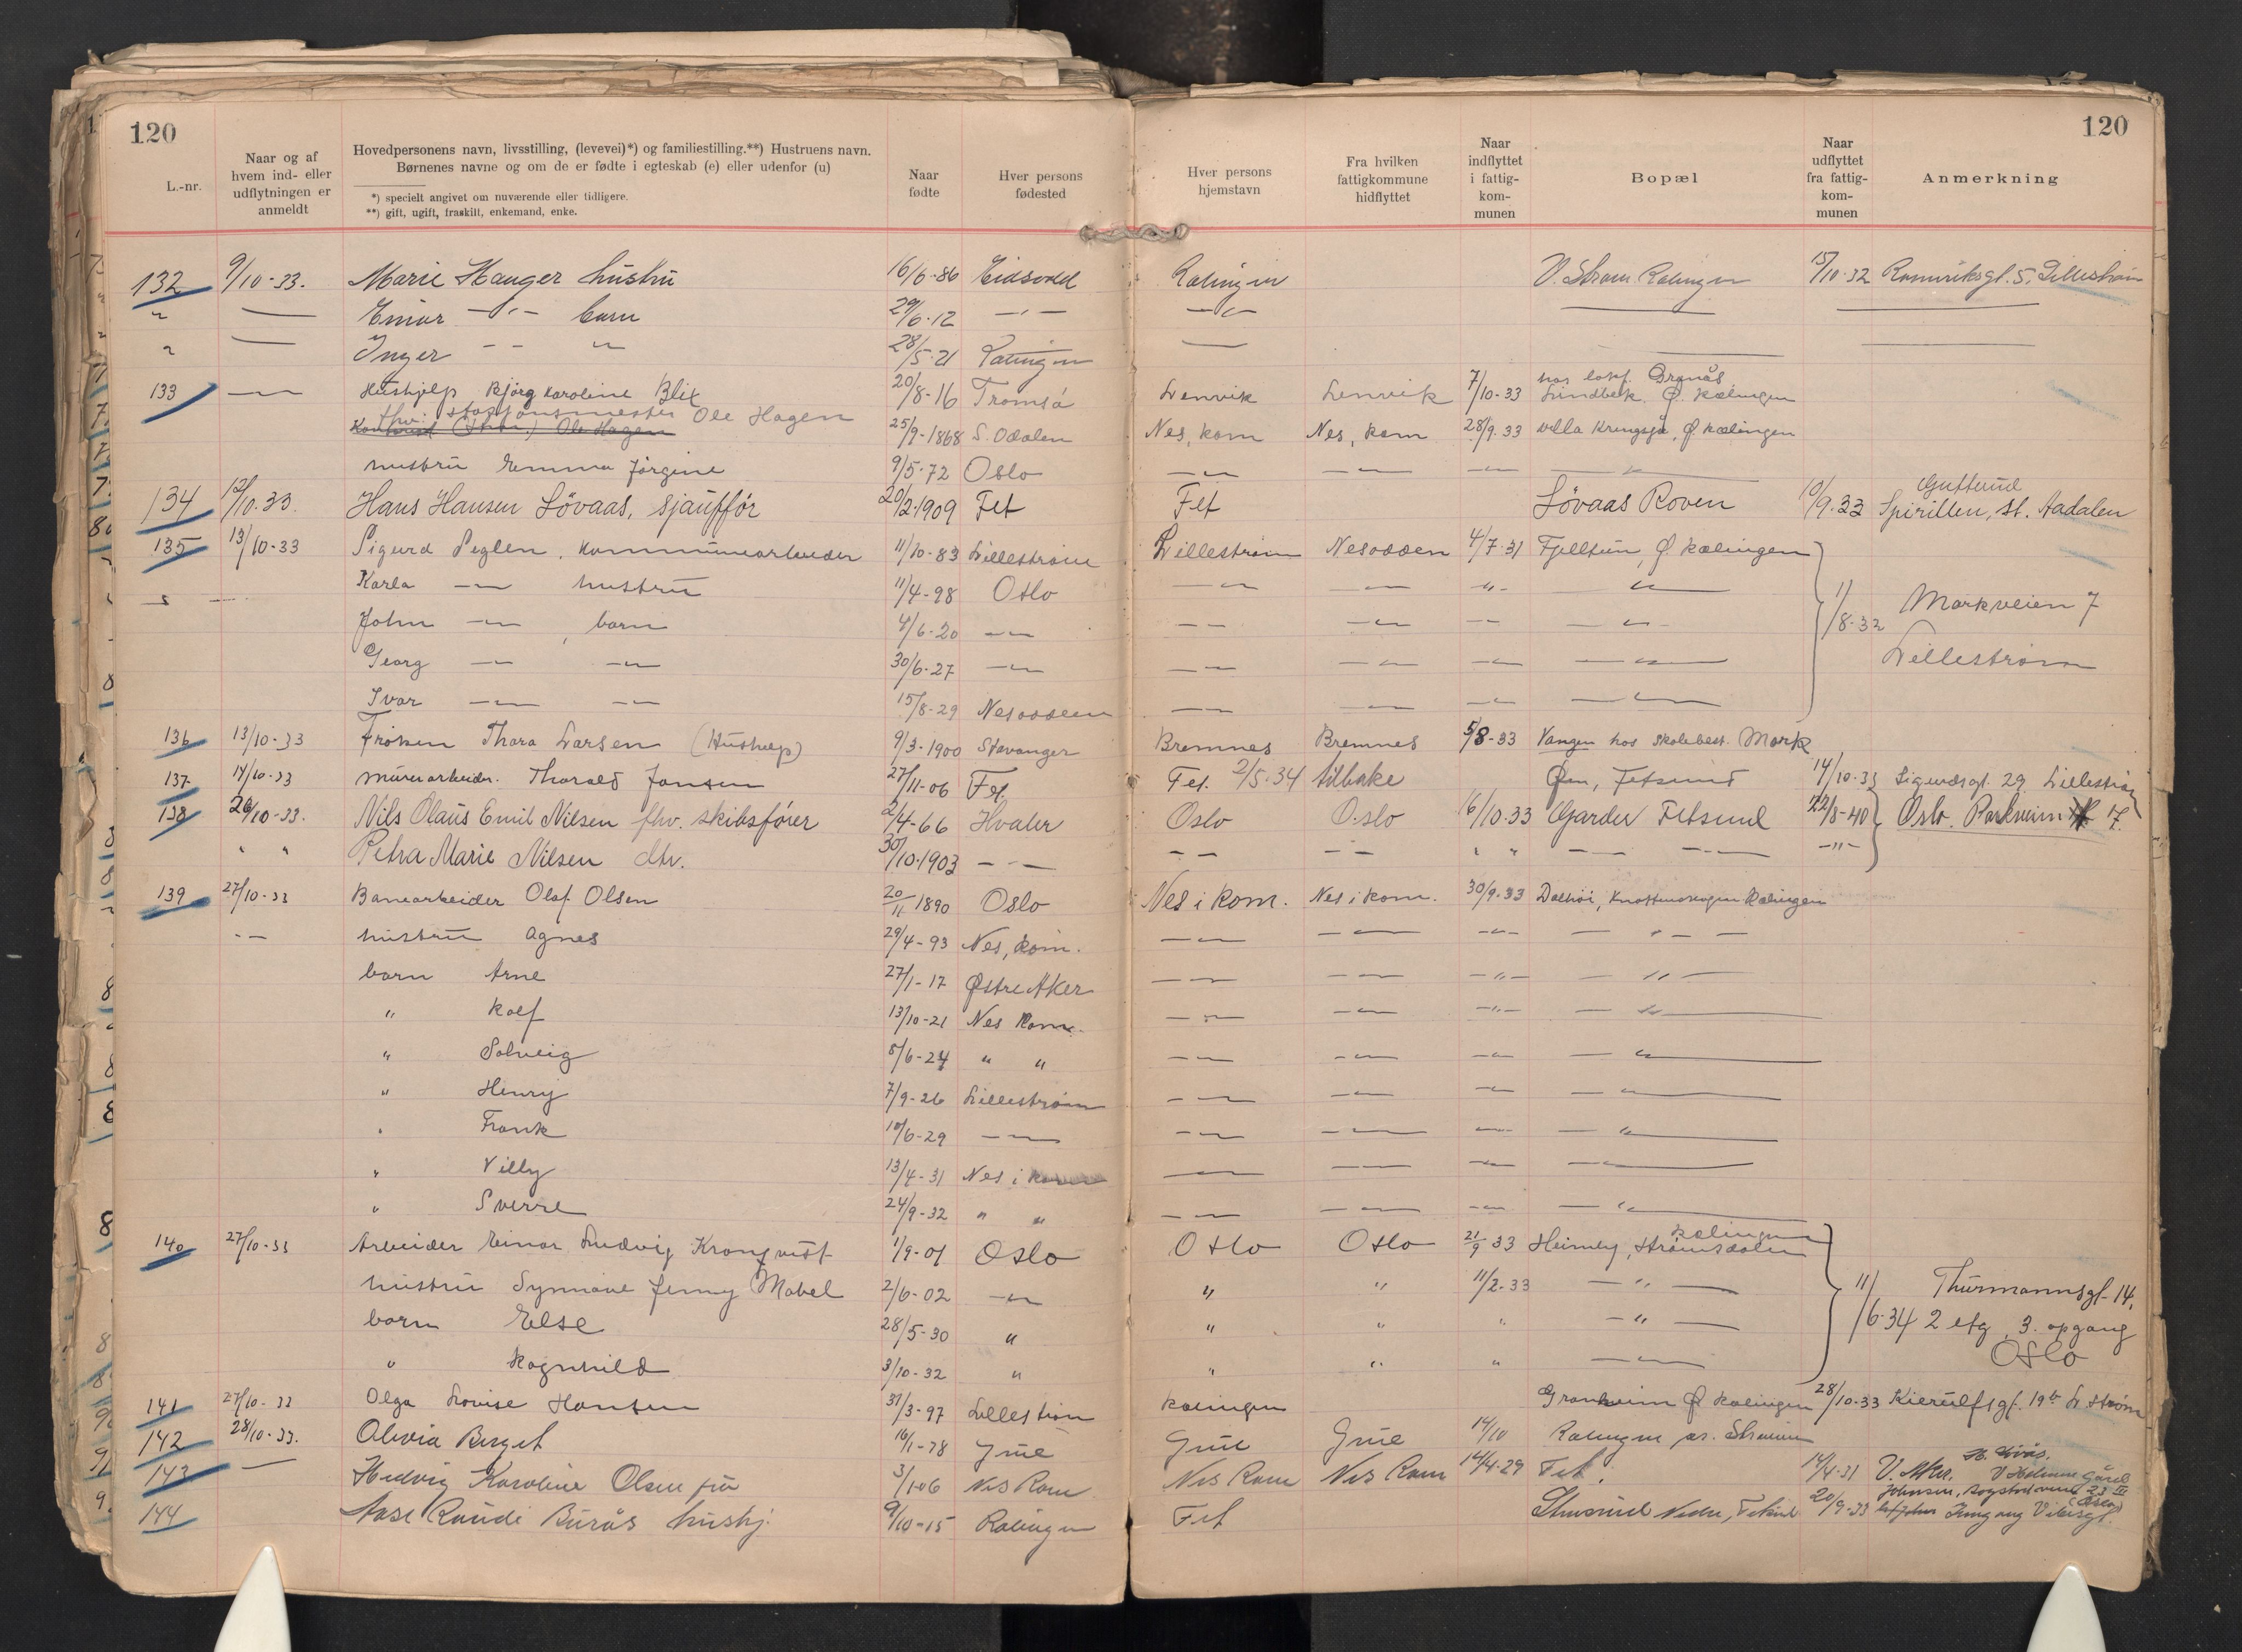 120
120
L.-nr.
Naar og af hvem ind- eller udflytningen er anmeldt
Hovedpersonens navn, livsstilling, (levevei)*) og familiestilling.**) Hustruens navn.
Børnenes navne og om de er fødte i egteskab (e) eller udenfor (u)
*) specielt angivet om nuværende eller tidligere.
**) gift, ugift, fraskilt, enkemand, enke.
Naar fødte
Hver persons fødested
Hver persons hjemstavn
Fra hvilken fattigkommune hidflyttet
Naar indflyttet i fattig-kom-munen
Bopæl
Naar udflyttet fra fattig-kom-munen
Anmerkning
132 9/10-33. Marie Hauger hustru 16/6-86 Eidsvold Rælingen V. Strøm Rælingen 15/10-32 Romeriksgt. 5. Lillestrøm
" — Einar -"- barn 29/6-12 -"- -"-
" — Inger - - " 28/5-21 Rælingen —
133 — Hushjelp Bjørg Karoline Blix 20/8-16 Tromsø Lenvik Lenvik 7/10-33 hos lokf. Granås Lundbek Ø. Rælingen
fhv. stasjonsmester Ole Hagen 25/9-1868 S. Odalen Nes, Rom Nes, Rom 28/9-33 villa Krengsjå, Ø Rælingen
hustru Emma Jørgine 9/5-72 Oslo -"- -"- -"- -"-
134 12/10-33. Hans Hansen Løvaas, sjauffør 20/2-1909 Fet Fet Løvaas Roven 10/9-33 Gulterud Spirillen, st. Aadalen
135 13/10-33 Sigurd Seglen, kommunearbeider 11/10-83 Lillestrøm Lillestrøm Nesodden 4/7-31 Fjelltun, Ø. Rælingen
Karla -"- hustru 11/4-98 Oslo -"- -"- -"- -"-
John -"- , barn 4/6-20 -"- -"- -"- -"- -"- 11/8-32 Markveien 7
Georg -"- -"- 30/6-27 -"- -"- -"- -"- -"- Lillestrøm
Ivar -"- -"- 15/8-29 Nesodden -"- -"- -"- -"-
136 13/10-33 Frøken Thora Larsen (Hushelp) 9/3-1900 Stavanger Bremnes Bremnes 5/8-33 Vangen hos skolebest. Mørk
137 14/10-33 Murerarbeider. Thorald Jansen 27/11-06 Fet. Fet. 2/5-34 tilbake Øen, Fetsund 14/10-33 Sigurdsgt. 29 Lillestrøm
138 26/10-33. Nils Olaus Emil Nilsen fhv. skibsfører 2/4-66 Hvaler Oslo Oslo 16/10-33 Garder Fetsund 22/8-40 Oslo. Parkveien 17.
" " Petra Marie Nilsen dtr. 30/10-1903 - - - - - - " " - - - - -"-
139 27/10-33 Banearbeider Olaf Olsen 20/11 1890 Oslo Nes i Rom. Nes i Rom. 30/9-33 Dalhøi, Knattenskogen Rælingen
- - hustru Agnes 29/4-93 Nes, Rom. -"- -"- -"- -"-
barn Arne 27/1-17 Østre Aker -"- -"- -"- -"-
" Rolf 13/10-21 Nes Rom. -"- -"- -"- -"-
" Solveig 5/6-24 " " -"- -"- -"- -"-
" Henry 7/9-26 Lillestrøm -"- -"- -"- -"-
" Frank 10/6-29 -"- -"- -"- -"- -"-
" Villy 13/4-31 Nes i Rom -"- -"- -"- -"-
" Sverre 24/9-32 " " -"- -"- -"- -"-
140 27/10-33 Arbeider Einar Ludvig Kronqvist 1/9-01 Oslo Oslo Oslo 21/9 33 Heimly, Strømsdalen Rælingen
hustru Synnøve Jenny Mabel 2/6-02 -"- " " 11/2-33 -"- 11/6-34 Thurmannsgt. 14,
barn Else 28/5-30 " " " " -"- 2 etg, 3. opgang
" Ragnhild 3/10-32 " " " " -"- Oslo
141 27/10-33 Olga Lovise Hansen 31/3-97 Lillestrøm Rælingen Granheim Ø Rælingen 28/10-33 Kierulfsgt. 19b L.strøm
142 28/10-33. Olivia Berget 16/1-78 Grue Grue Grue 14/10 Rælingen pr. Strømmen
143 — Hedvig Karoline Olsen fru 3/1-06 Nes Rom Nes Rom Nes Rom 14/4-29 Fet. 14/4-31 V. Aker.
144 Aase Randi Burås hushj. 9/10-15 Rælingen Fet Nedre, Fetsund 20/9-33 Johnsen, Sogstadveien 23 III (Oslo)